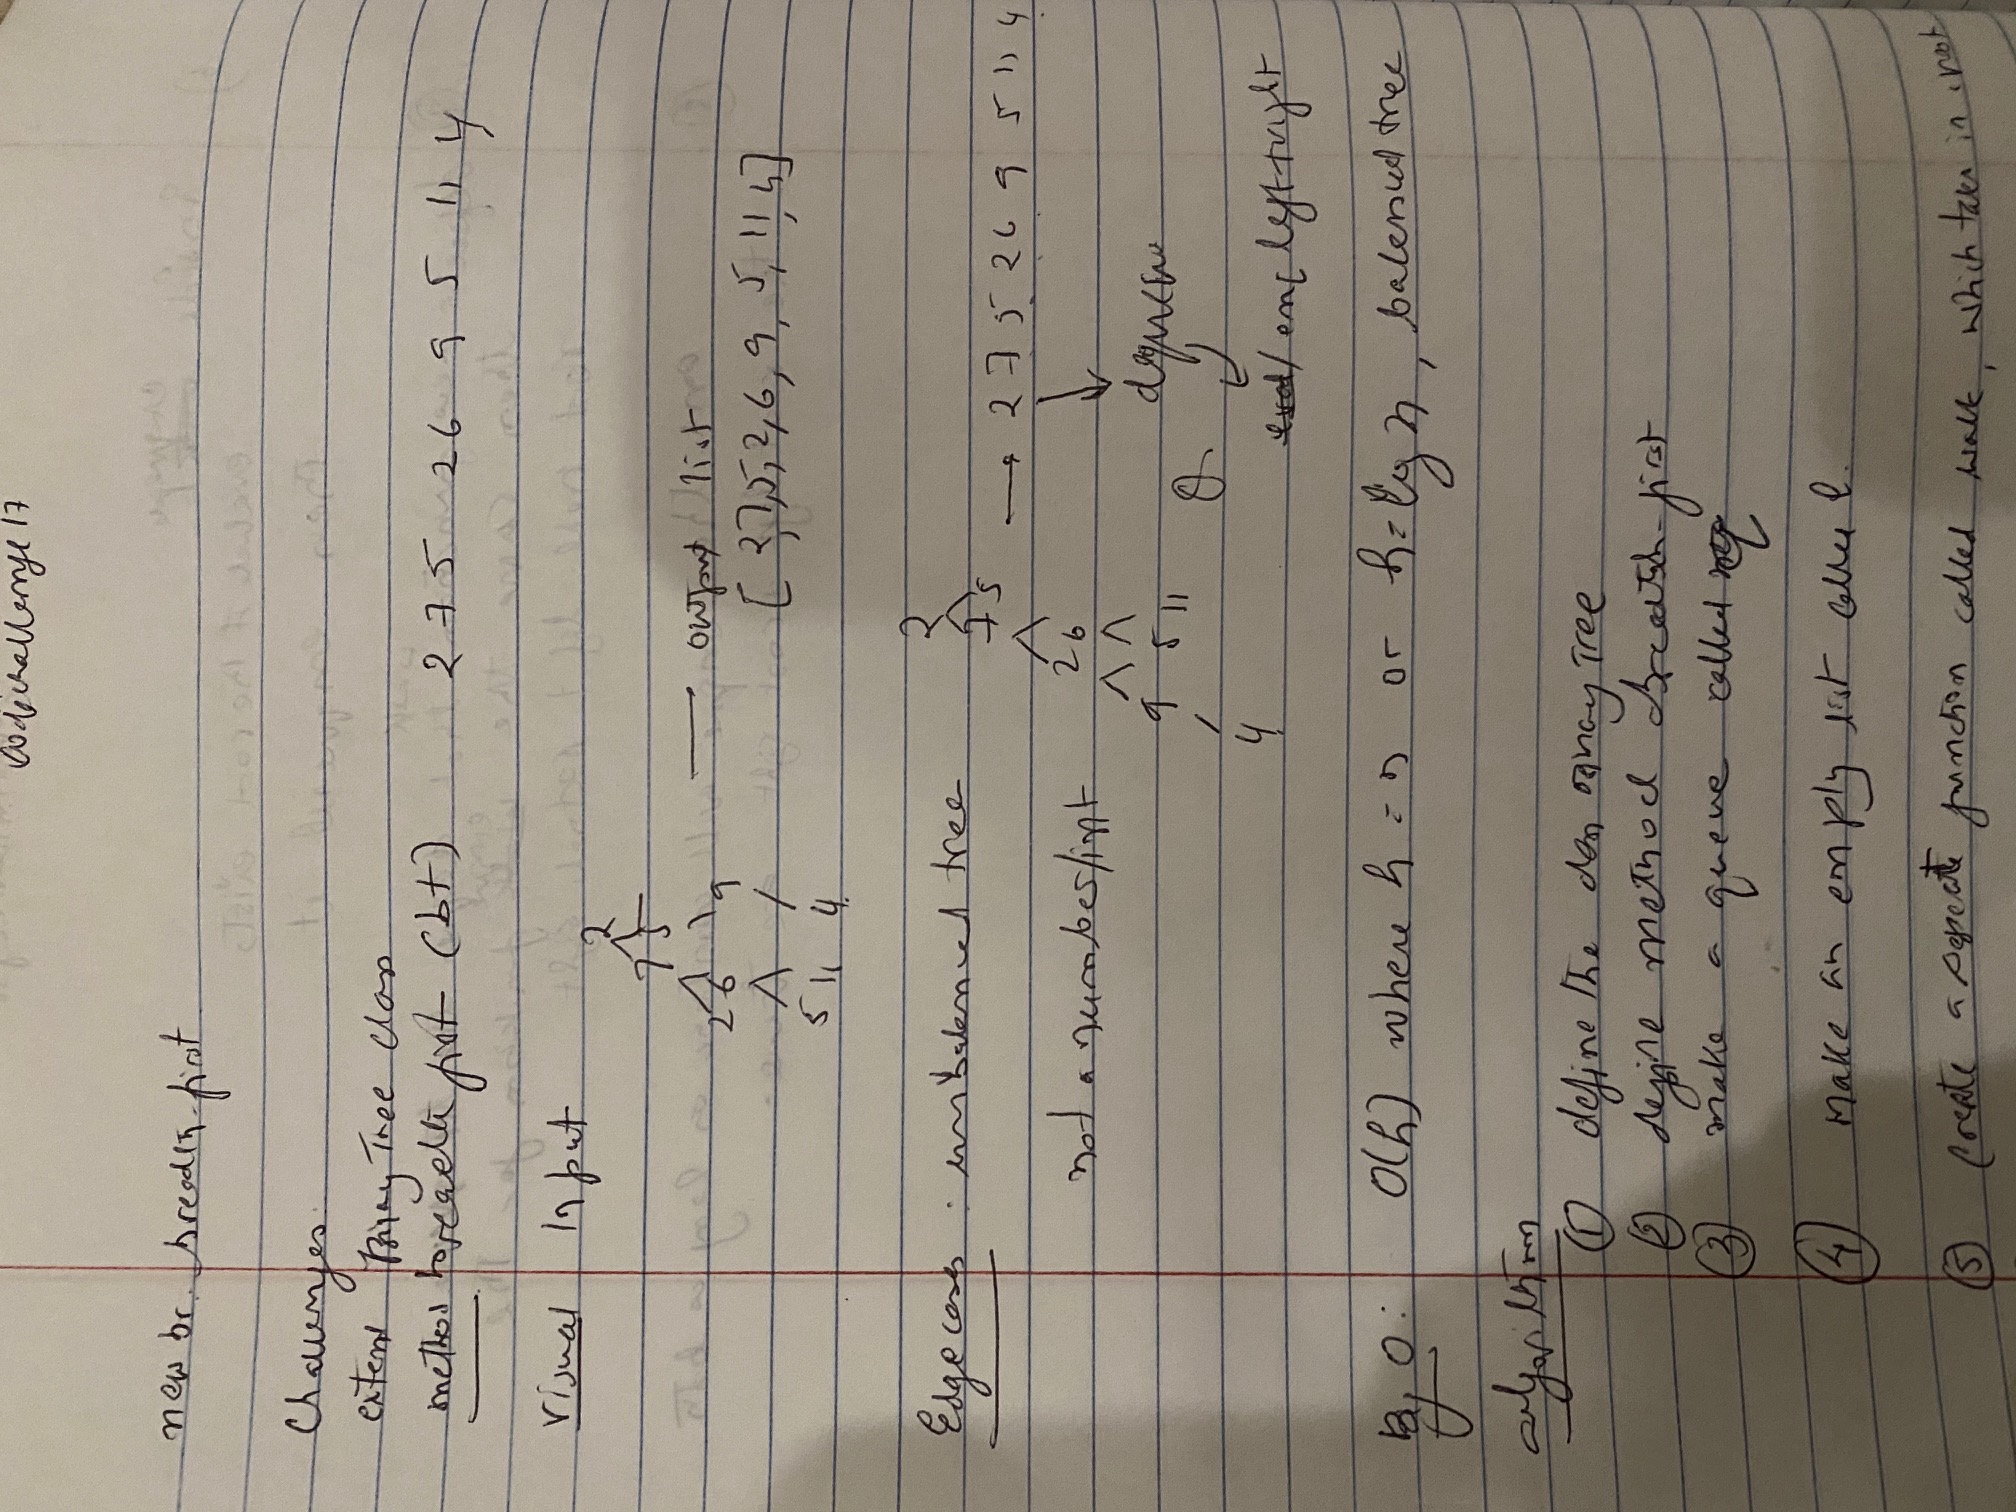 Codechallenge 17
new br. breadth-first
Challenges
extend Binary Tree class
method breadth first (bt) 2 7 5 2 6 9 5 11 4
Visual Input
2
7 5
2 6 9 → output list
[2,7,5,2,6,9,5,11,4]
5 11 4
Edge cases : unbalanced tree
2
7 5
→ 2 7 5 2 6 9 5 11 4
not a number/int
2 6
9 5 11
dequeue
4
/ enq left + right
Big O: O(h) where h = n or h = log n, balanced tree
algorithm
① define the class BinaryTree
② define method breadth-first
③ make a queue called q
④ Make an empty list called l.
⑤ create a separate function called walk, which takes in root